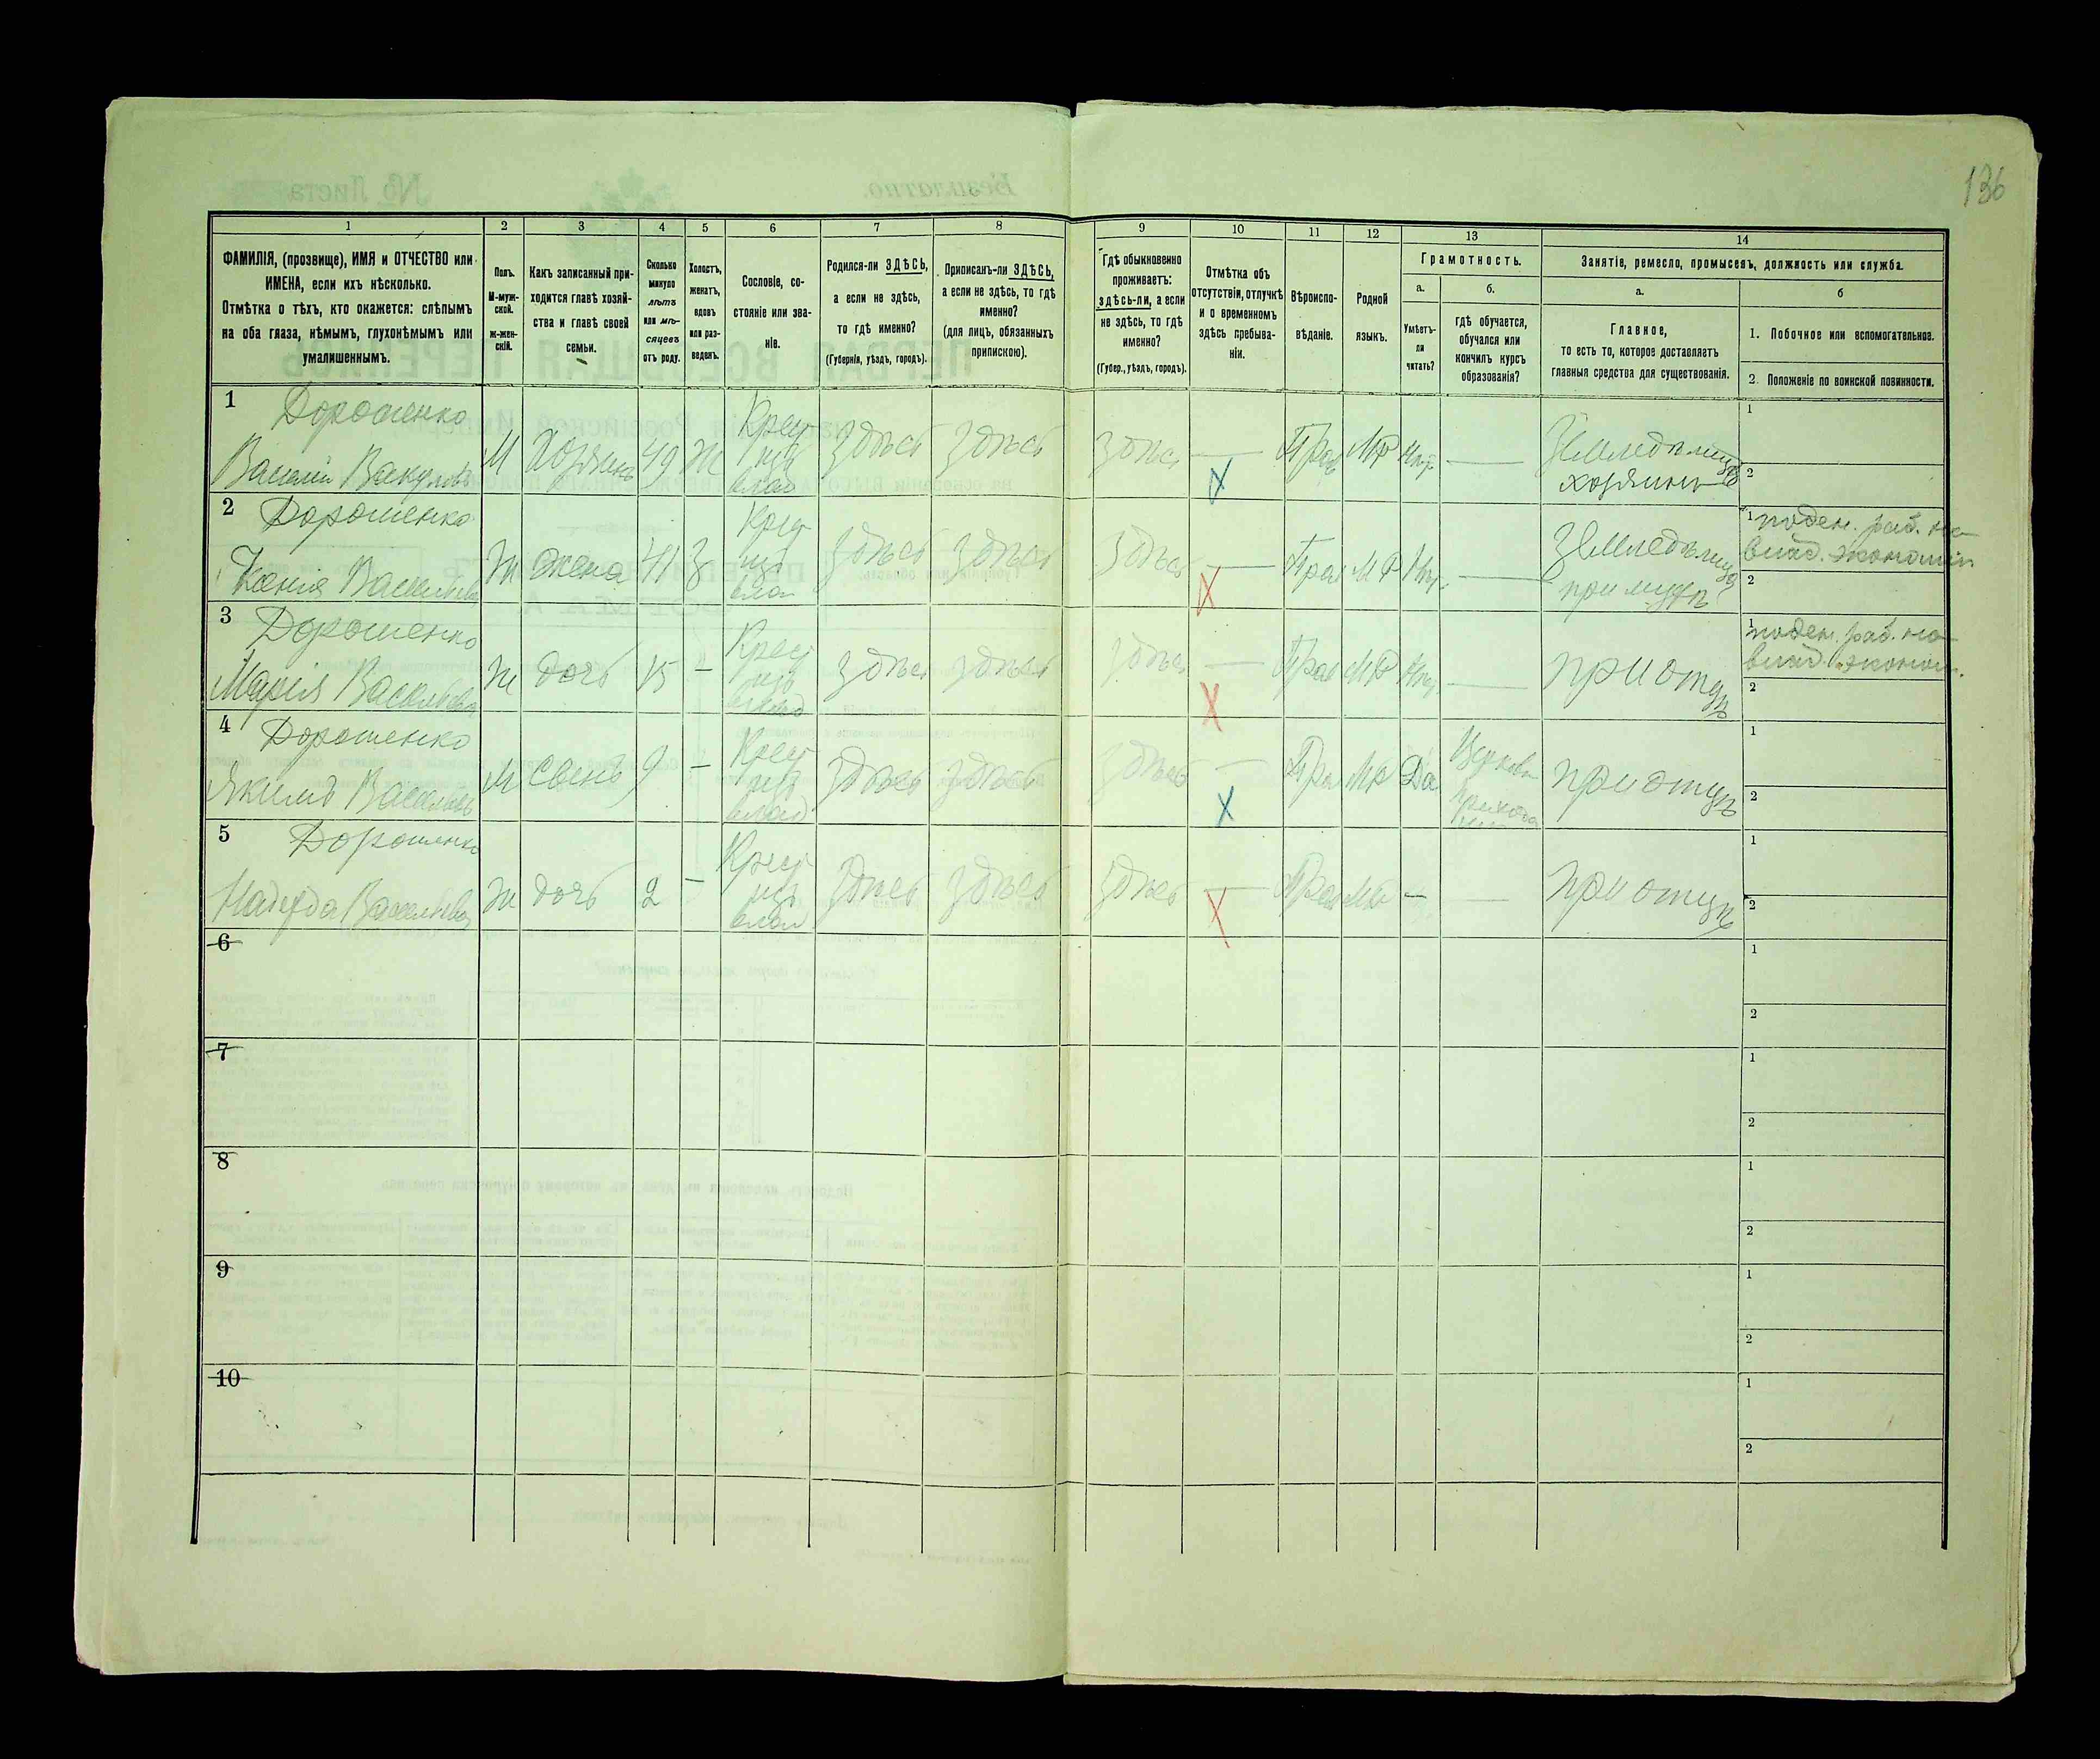 136
1
2
3
4
5
6
7
8
9
10
11
12
13
14
ФАМИЛІЯ, (прозвище), ИМЯ и ОТЧЕСТВО или
ИМЕНА, если ихъ нѣсколько.
Отмѣтка о тѣхъ, кто окажется: слѣпымъ
на оба глаза, нѣмымъ, глухонѣмымъ или
умалишеннымъ.
Полъ.
М-муж-
ской.
Ж-жен-
скій.
Какъ записанный при-
ходится главѣ хозяй-
ства и главѣ своей
семьи.
Сколько
минуло
лѣтъ
или мѣ-
сяцевъ
отъ роду.
Холостъ,
женатъ,
вдовъ
или раз-
веденъ.
Сословіе, со-
стояніе или зва-
ніе.
Родился-ли ЗДѢСЬ,
а если не здѣсь,
то гдѣ именно?
(Губернія, уѣздъ, городъ).
Приписанъ-ли ЗДѢСЬ,
а если не здѣсь, то гдѣ
именно?
(для лицъ, обязанныхъ
припискою).
Гдѣ обыкновенно
проживаетъ:
здѣсь-ли, а если
не здѣсь, то гдѣ
именно?
(Губер., уѣздъ, городъ).
Отмѣтка объ
отсутствіи, отлучкѣ
и о временномъ
здѣсь пребыва-
ніи.
Вѣроиспо-
вѣданіе.
Родной
языкъ.
Грамотность.
а.
Умѣетъ-
ли
читать?
б.
гдѣ обучается,
обучался или
кончилъ курсъ
образованія?
Занятіе, ремесло, промыселъ, должность или служба.
а.
Главное,
то есть то, которое доставляетъ
главныя средства для существованія.
б
1. Побочное или вспомогательное.
2. Положеніе по воинской повинности.
1 Дорошенко
Василій Вакуловъ М Хозяинъ 49 Ж Крест изъ влад здѣсь здѣсь здѣсь — Прав МР Нѣт — Земледѣлецъ
хозяинъ
1
2
2 Дорошенко
Ксенія Васильева Ж Жена 41 З Крест изъ влад здѣсь здѣсь здѣсь — Прав МР Нѣт — Земледѣлица
при мужѣ
1 поден. раб. на
влад. экономіи
2
3 Дорошенко
Марія Васильева Ж дочь 15 - Крест изъ влад здѣсь здѣсь здѣсь — Прав МР Нѣт — при отцѣ
1 поден. раб. на
влад. эконом.
2
4 Дорошенко
Якимъ Васильевъ М Сынъ 9 - Крест изъ влад здѣсь здѣсь здѣсь — Прав МР Да Церковн приходск при отцѣ
1
2
5 Дорошенко
Надежда Васильева Ж дочь 2 - Крест изъ влад здѣсь здѣсь здѣсь — Прав МР — — при отцѣ
1
2
6
1
2
7
1
2
8
1
2
9
1
2
10
1
2